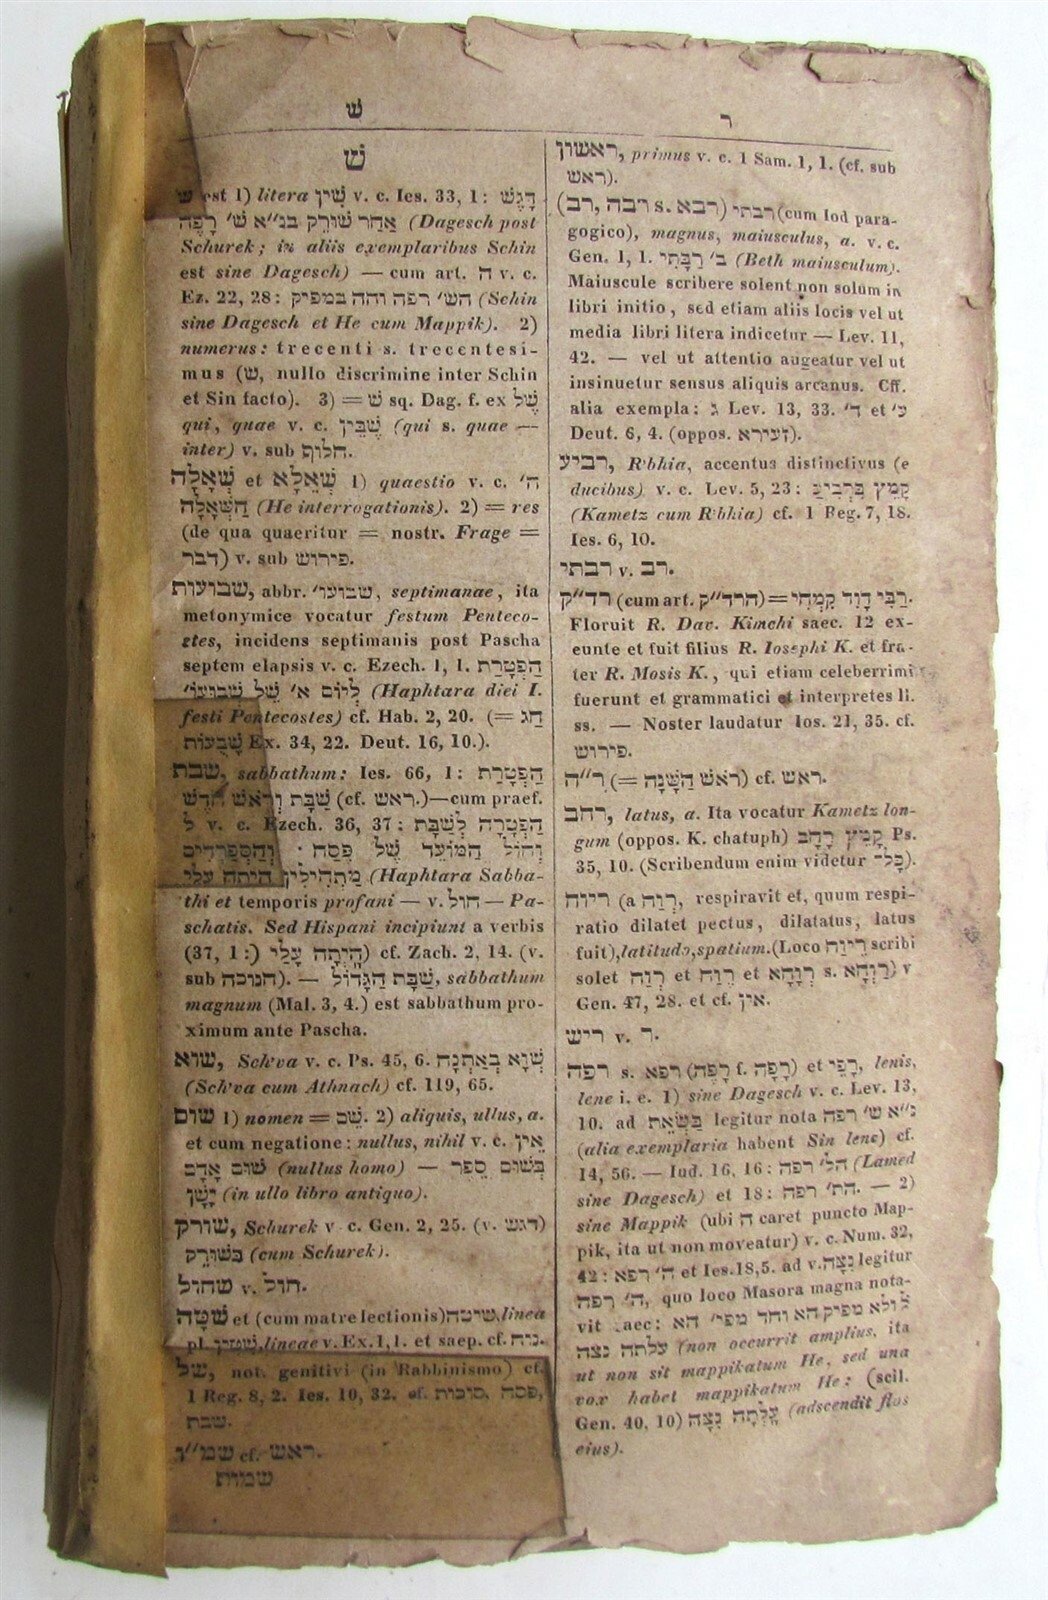 ש ר
ראשון, primus v. c. 1 Sam. 1, 1. (cf. sub
ראש).
רבתי (רבא s. רבה, רב) (cum Iod para-
gogico), magnus, maiusculus, a. v. c.
Gen. 1, 1. ב' רַבָּתִי (Beth maiusculum).
Maiuscule scribere solent non solum in
libri initio, sed etiam aliis locis vel ut
media libri litera indicetur — Lev. 11,
42. — vel ut attentio augeatur vel ut
insinuetur sensus aliquis arcanus. Cff.
alia exempla: ג Lev. 13, 33. ד' et ע'
Deut. 6, 4. (oppos. זעירא).
רביע, R'bhia, accentus distinctivus (e
ducibus) v. c. Lev. 5, 23: קָמֵץ בִּרְבִיעַ
(Kametz cum R'bhia) cf. 1 Reg. 7, 18.
Ies. 6, 10.
רבתי v. רב.
רד״ק (cum art. הרד״ק) = רַבִּי דָוִד קִמְחִי.
Floruit R. Dav. Kimchi saec. 12 ex-
eunte et fuit filius R. Iosephi K. et fra-
ter R. Mosis K., qui etiam celeberrimi
fuerunt et grammatici et interpretes li.
ss. — Noster laudatur Ios. 21, 35. cf.
פירוש.
ר״ה (= רֹאשׁ הַשָּׁנָה) cf. ראש.
רחב, latus, a. Ita vocatur Kametz lon-
gum (oppos. K. chatuph) קָמֵץ רָחָב Ps.
35, 10. (Scribendum enim videtur כָּל־).
ריוח (a רָוַח, respiravit et, quum respi-
ratio dilatet pectus, dilatatus, latus
fuit), latitudo, spatium. (Loco רֵיוַח scribi
solet רֶוַח et רֵוַח et רְוָחָא s. רַוְחָא) v
Gen. 47, 28. et cf. אין.
ריש v. ר.
רפה s. רפא (רָפָה f. רָפֶה) et רָפֵי, lenis,
lene i. e. 1) sine Dagesch v. c. Lev. 13,
10. ad בַּשְׂאֵת legitur nota נ״א ש' רפה
(alia exemplaria habent Sin lene) cf.
14, 56. — Iud. 16, 16: הל' רפה (Lamed
sine Dagesch) et 18: הת' רפה. — 2)
sine Mappik (ubi ה caret puncto Map-
pik, ita ut non moveatur) v. c. Num. 32,
42: ה' רפא et Ies. 18, 5. ad v. נִצָּה legitur
ה' רפה, quo loco Masora magna nota-
vit haec: לולא מפיק הא וחד מפי' הא
עלתה נצה (non occurrit amplius, ita
ut non sit mappikatum He, sed una
vox habet mappikatum He: (scil.
Gen. 40, 10) עָלְתָה נִצָּה (adscendit flos
eius).
ש
ש est 1) litera שִׁין v. c. Ies. 33, 1: דָּגֵשׁ
אַחַר שׁוּרֶק בנ״א ש' רָפֶה (Dagesch post
Schurek; in aliis exemplaribus Schin
est sine Dagesch) — cum art. ה v. c.
Ez. 22, 28: הש' רפה והה במפיק (Schin
sine Dagesch et He cum Mappik). 2)
numerus: trecenti s. trecentesi-
mus (ש, nullo discrimine inter Schin
et Sin facto). 3) = שׁ sq. Dag. f. ex שֶׁל
qui, quae v. c. שֶׁבֵּין (qui s. quae —
inter) v. sub חלוף.
שְׁאָלָה et שְׁאֵלָא 1) quaestio v. c. ה'
הַשְּׁאָלָה (He interrogationis). 2) = res
(de qua quaeritur = nostr. Frage =
דבר) v. sub פירוש.
שבועות, abbr. שבועו', septimanae, ita
metonymice vocatur festum Penteco-
stes, incidens septimanis post Pascha
septem elapsis v. c. Ezech. 1, 1. הַפְטָרַת
לְיוֹם א' שֶׁל שבועו' (Haphtara diei I.
festi Pentecostes) cf. Hab. 2, 20. (= חַג
שָׁבֻעוֹת Ex. 34, 22. Deut. 16, 10.).
שבת, sabbathum: Ies. 66, 1: הַפְטָרַת
שַׁבָּת וְרֹאשׁ חֹדֶשׁ (cf. ראש.) — cum praef.
ל v. c. Ezech. 36, 37: הַפְטָרָה לְשַׁבָּת
וְחוֹל הַמּוֹעֵד שֶׁל פֶּסַח · וְהַסְפָרַדִּים
מַתְחִילִין היתה עלי (Haphtara Sabba-
thi et temporis profani — v. חול — Pa-
schatis. Sed Hispani incipiunt a verbis
(37, 1:) הָיְתָה עָלַי) cf. Zach. 2, 14. (v.
sub חנוכה). — שַׁבָּת הַגָּדוֹל, sabbathum
magnum (Mal. 3, 4.) est sabbathum pro-
ximum ante Pascha.
שוא, Sch'va v. c. Ps. 45, 6. שְׁוָא בְאַתְנָח
(Sch'va cum Athnach) cf. 119, 65.
שום 1) nomen = שֵׁם. 2) aliquis, ullus, a.
et cum negatione: nullus, nihil v. c. אֵין
שׁוּם אָדָם (nullus homo) — בְּשׁוּם סֵפֶר
יָשָׁן (in ullo libro antiquo).
שורק, Schurek v c. Gen. 2, 25. (v. דגש)
בְּשׁוּרֶק (cum Schurek).
שחול v. חול.
שִׁטָּה et (cum matre lectionis) שיטה, linea
pl. שיטין, lineae v. Ex. 1, 1. et saep. cf. ניח.
של, not. genitivi (in Rabbinismo) cf.
1 Reg. 8, 2. Ies. 10, 32. cf. סוכות, פסח,
שבת.
cf. ראש.
שמות